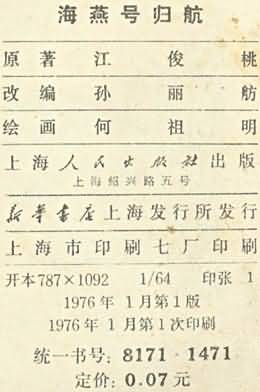 海燕号归航
原著 江俊桃
改编 孙丽舫
绘画 何祖明
上海人民出版社出版
上海绍兴路五号
新华书店上海发行所发行
上海市印刷七厂印刷
开本787×1092 1/64 印张 1
1976年 1月第1版
1976年 1月第1次印刷
统一书号：8171·1471
定价：0.07元